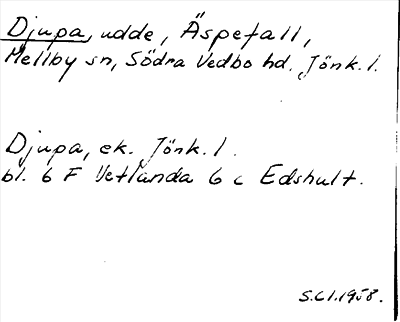 Djupa, udde, Äspefall,
Mellby sn, Södra Vedbo hd. Jönk. l.
Djupa, ek. Jönk. l.
bl. 6 F Vetlanda 6 c Edshult.
S.C l. 1958.